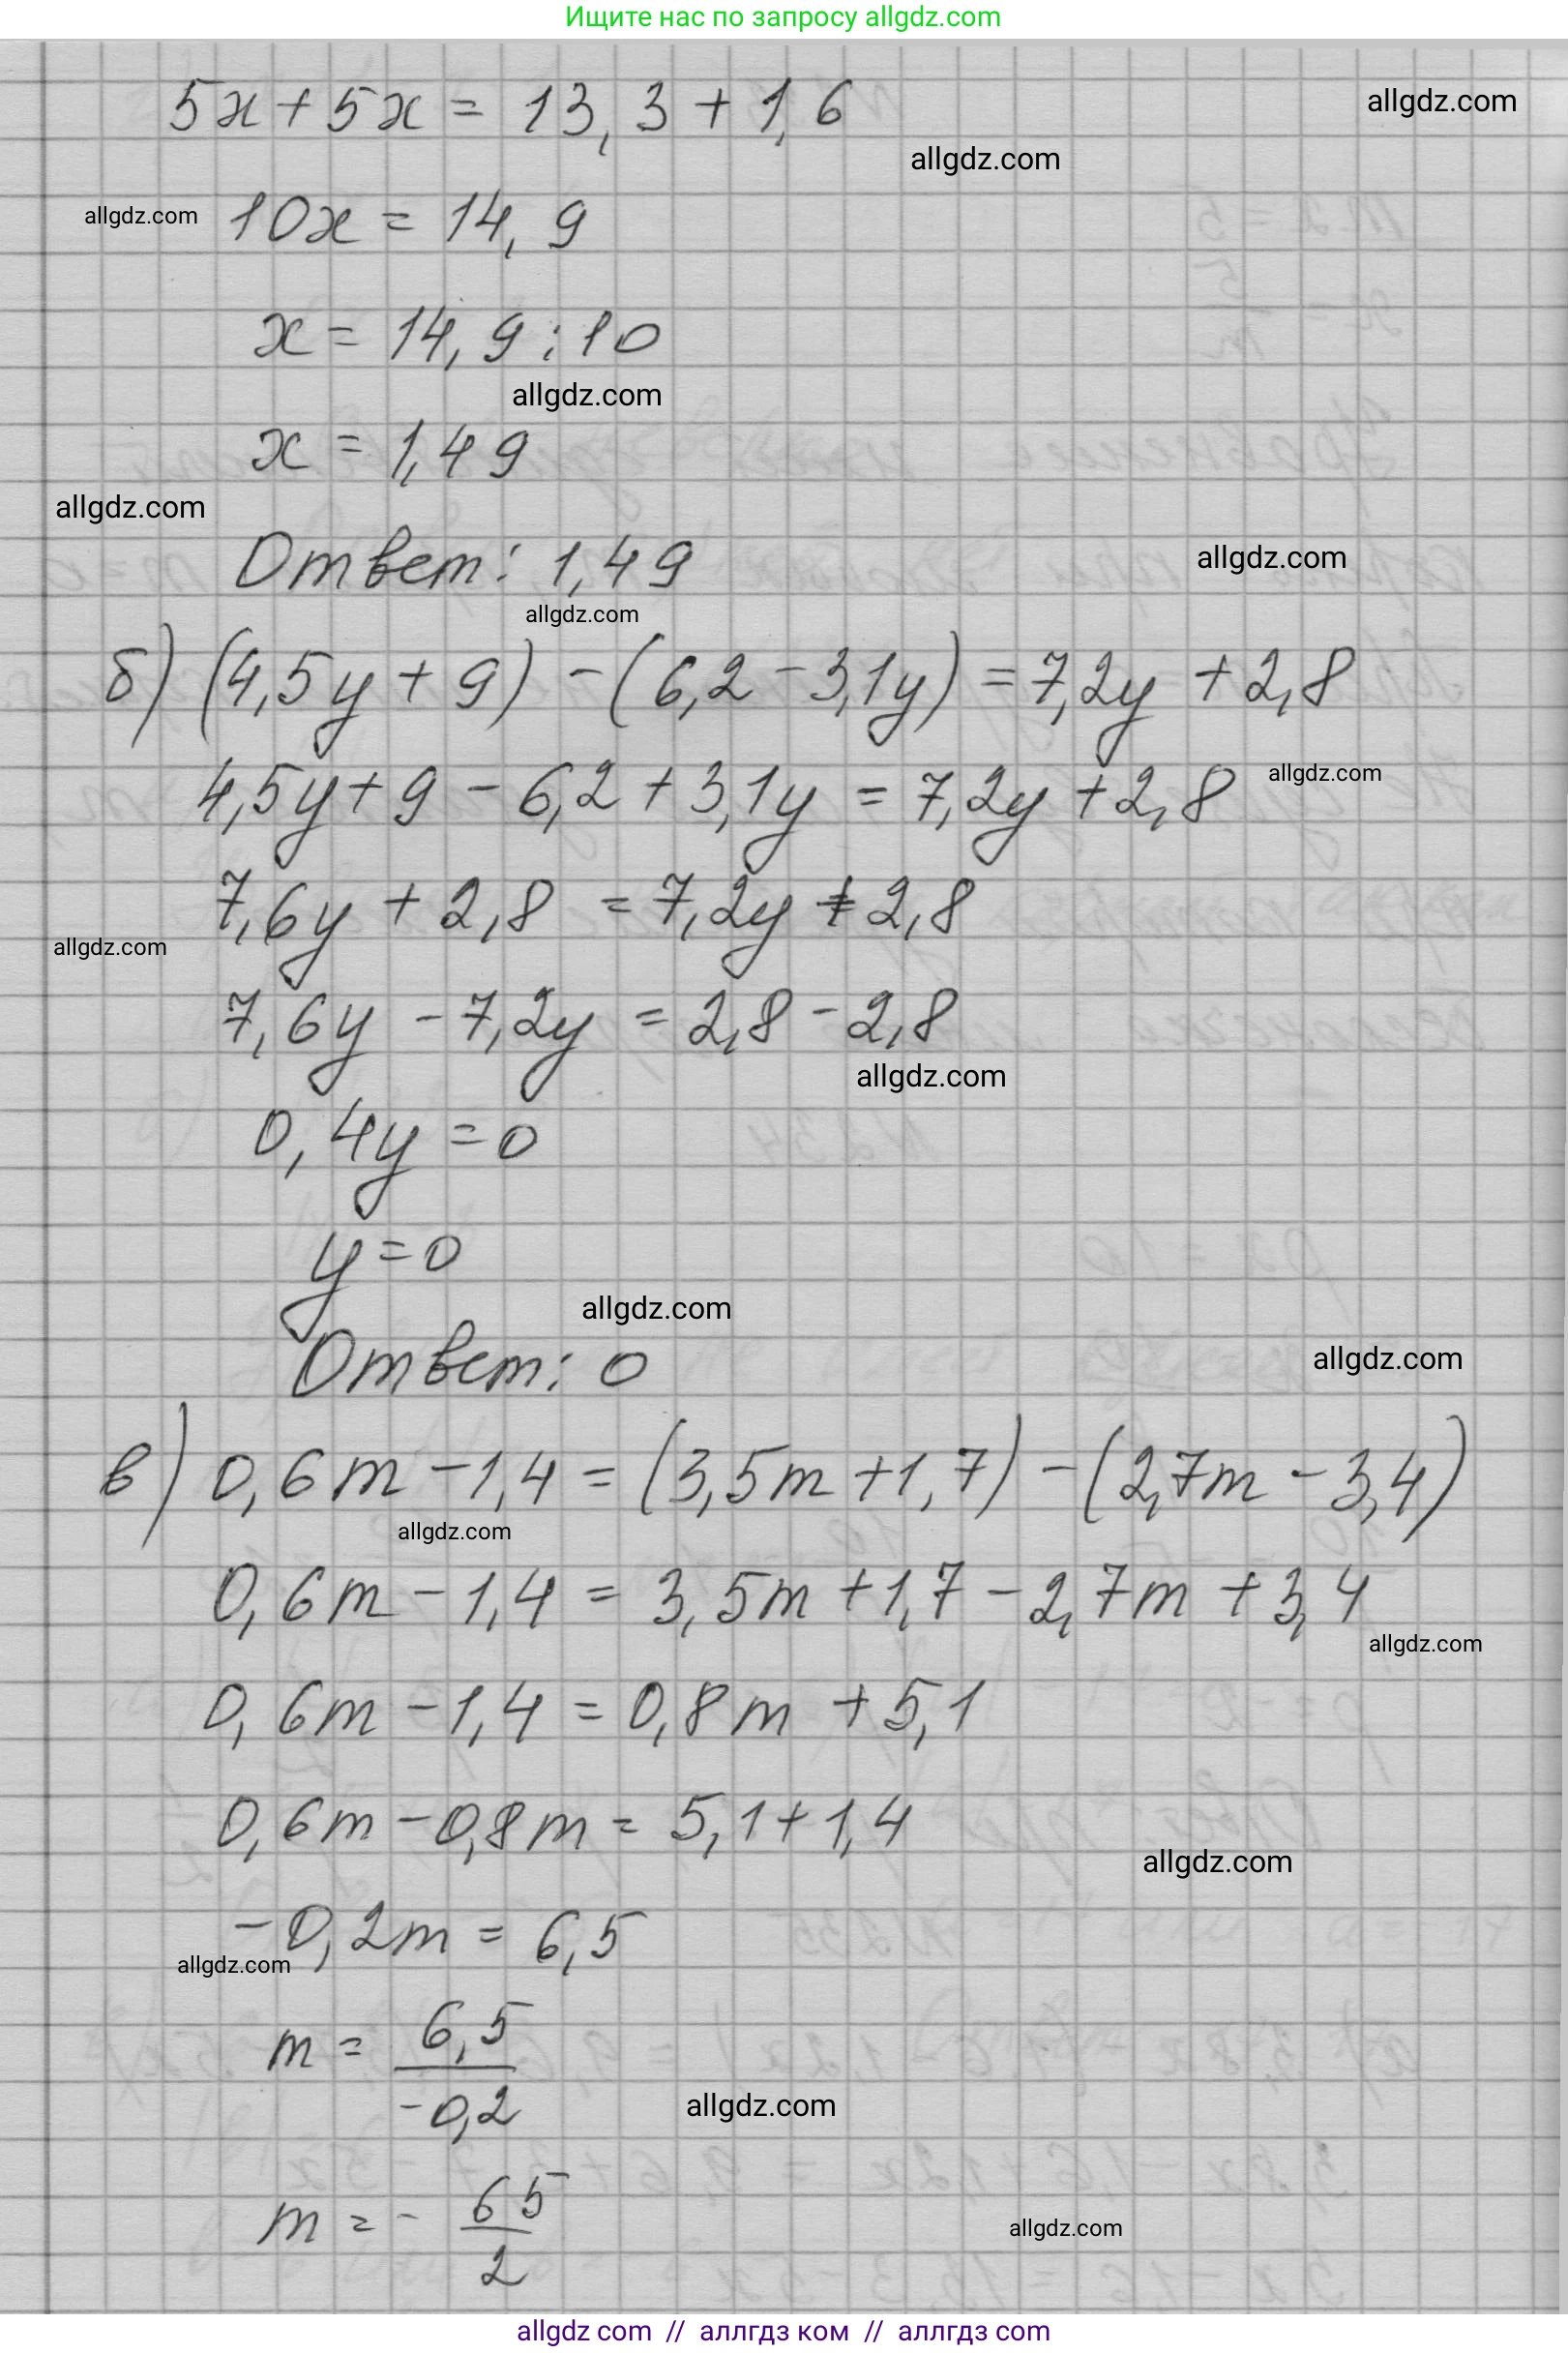 Ищите нас по запросу allgdz.com
5x + 5x = 13,3 + 1,6
allgdz.com
allgdz.com
allgdz.com
10x = 14,9
x = 14,9 : 10
allgdz.com
x = 1,49
allgdz.com
Ответ: 1,49
allgdz.com
allgdz.com
б) (4,5y + 9) - (6,2 - 3,1y) = 7,2y + 2,8
4,5y + 9 - 6,2 + 3,1y = 7,2y + 2,8
allgdz.com
7,6y + 2,8 = 7,2y + 2,8
allgdz.com
7,6y - 7,2y = 2,8 - 2,8
allgdz.com
0,4y = 0
y = 0
allgdz.com
Ответ: 0
allgdz.com
в) 0,6m - 1,4 = (3,5m + 1,7) - (2,7m - 3,4)
allgdz.com
0,6m - 1,4 = 3,5m + 1,7 - 2,7m + 3,4
allgdz.com
0,6m - 1,4 = 0,8m + 5,1
0,6m - 0,8m = 5,1 + 1,4
allgdz.com
-0,2m = 6,5
allgdz.com
m = 6,5 / -0,2
allgdz.com
m = - 65 / 2
allgdz.com
allgdz com // аллгдз ком // аллгдз com